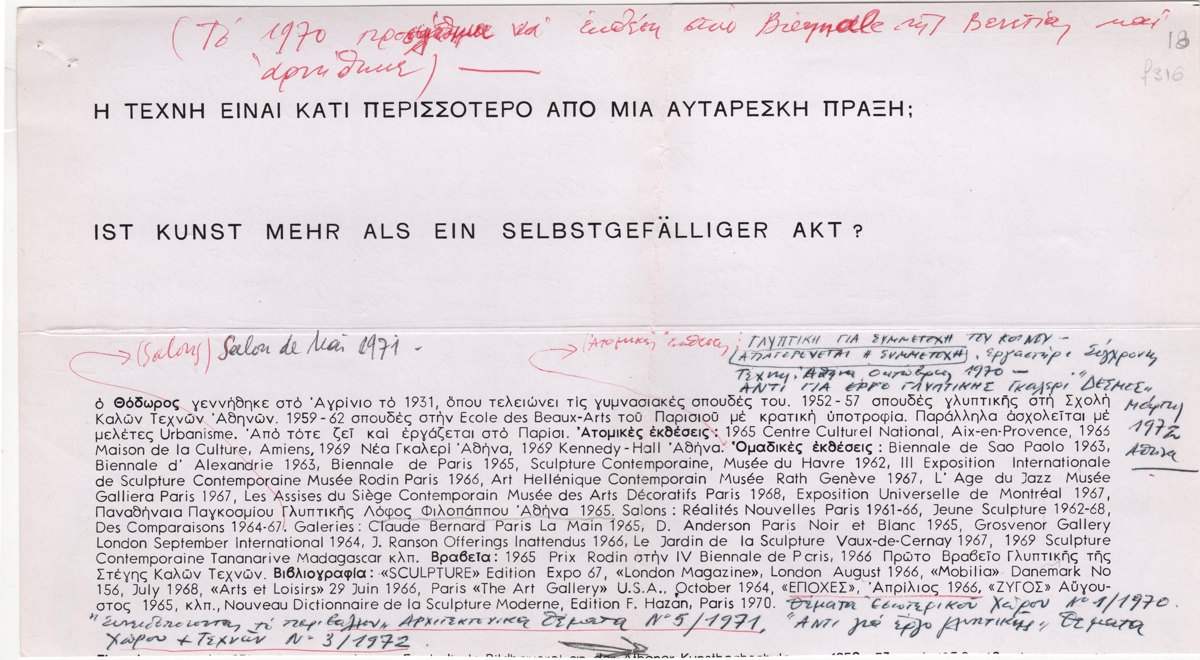 (Τό 1970 προσκλήθηκα νά ἐκθέση στήν Biennale τῆς Βενετίας καί
ἀρνήθηκε)
18
f316
Η ΤΕΧΝΗ ΕΙΝΑΙ ΚΑΤΙ ΠΕΡΙΣΣΟΤΕΡΟ ΑΠΟ ΜΙΑ ΑΥΤΑΡΕΣΚΗ ΠΡΑΞΗ;
IST KUNST MEHR ALS EIN SELBSTGEFÄLLIGER AKT ?
(Salons) Salon de Mai 1971 -
(Ἀτομική ἔκθεση; ΓΛΥΠΤΙΚΗ ΓΙΑ ΣΥΜΜΕΤΟΧΗ ΤΟΥ ΚΟΙΝΟΥ -
ΑΠΑΓΟΡΕΥΕΤΑΙ Η ΣΥΜΜΕΤΟΧΗ, Εργαστήρι Σύγχρονης
Τέχνης, Αθήνα Οκτώβρης 1970 —
ΑΝΤΙ ΓΙΑ ΕΡΓΟ ΓΛΥΠΤΙΚΗΣ Γκαλερί "ΔΕΣΜΟΣ"
Μάρτης
1972
Αθήνα
ὁ Θόδωρος γεννήθηκε στό Ἀγρίνιο τό 1931, ὅπου τελειώνει τίς γυμνασιακές σπουδές του. 1952-57 σπουδές γλυπτικῆς στή Σχολή
Καλῶν Τεχνῶν Ἀθηνῶν. 1959-62 σπουδές στήν Ecole des Beaux-Arts τοῦ Παρισιοῦ μέ κρατική ὑποτροφία. Παράλληλα ἀσχολεῖται μέ
μελέτες Urbanisme. Ἀπό τότε ζεῖ καί ἐργάζεται στό Παρίσι. Ἀτομικές ἐκθέσεις : 1965 Centre Culturel National, Aix-en-Provence, 1966
Maison de la Culture, Amiens, 1969 Νέα Γκαλερί Ἀθήνα, 1969 Kennedy-Hall Ἀθήνα. Ὁμαδικές ἐκθέσεις : Biennale de Sao Paolo 1963,
Biennale d' Alexandrie 1963, Biennale de Paris 1965, Sculpture Contemporaine, Musée du Havre 1962, III Exposition Internationale
de Sculpture Contemporaine Musée Rodin Paris 1966, Art Hellénique Contemporain Musée Rath Genève 1967, L' Age du Jazz Musée
Galliera Paris 1967, Les Assises du Siège Contemporain Musée des Arts Décoratifs Paris 1968, Exposition Universelle de Montréal 1967,
Παναθήναια Παγκοσμίου Γλυπτικῆς Λόφος Φιλοπάππου Ἀθήνα 1965. Salons : Réalités Nouvelles Paris 1961-66, Jeune Sculpture 1962-68,
Des Comparaisons 1964-67. Galeries : Claude Bernard Paris La Main 1965, D. Anderson Paris Noir et Blanc 1965, Grosvenor Gallery
London September International 1964, J. Ranson Offerings Inattendus 1966, Le Jardin de la Sculpture Vaux-de-Cernay 1967, 1969 Sculpture
Contemporaine Tananarive Madagascar κλπ. Βραβεῖα : 1965 Prix Rodin στήν IV Biennale de Paris, 1966 Πρῶτο Βραβεῖο Γλυπτικῆς τῆς
Στέγης Καλῶν Τεχνῶν. Βιβλιογραφία : «SCULPTURE» Edition Expo 67, «London Magazine», London August 1966, «Mobilia» Danemark No
156, July 1968, «Arts et Loisirs» 29 Juin 1966, Paris «The Art Gallery» U.S.A., October 1964, «ΕΠΟΧΕΣ», Ἀπρίλιος 1966, «ΖΥΓΟΣ» Αὔγου-
στος 1965, κλπ., Nouveau Dictionnaire de la Sculpture Moderne, Edition F. Hazan, Paris 1970. Θέματα Εσωτερικού Χώρου Νο 1/1970.
"Συνειδητοποίηση τό περιβάλλον" Αρχιτεκτονικά Θέματα Νο 5/1971, "Αντί γιά έργο γλυπτικής" Θέματα
Χώρου + Τεχνών Νο 3/1972